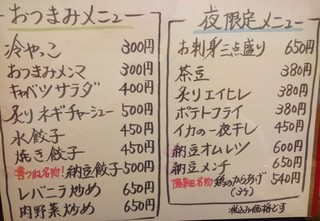 おつまみメニュー
冷やっこ 300円
おつまみメンマ 300円
キャベツサラダ 400円
炙りネギチャーシュー 500円
水餃子 450円
焼き餃子 450円
納豆餃子 500円
レバニラ炒め 650円
肉野菜炒め 650円
夜限定メニュー
お刺身三点盛り 650円
茶豆 380円
炙りエイヒレ 380円
ポテトフライ 380円
イカの一夜干し 450円
納豆オムレツ 600円
納豆メンチ 650円
鶏のからあげ 540円
税込み価格です